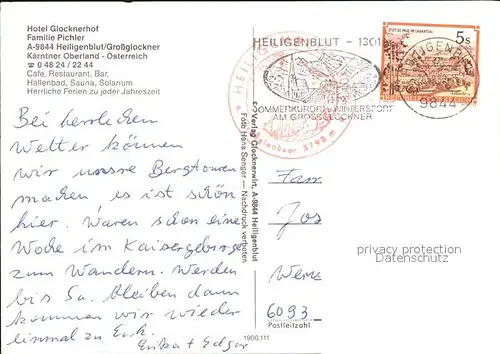 Hotel Glocknerhof
Familie Pichler
A-9844 Heiligenblut/Großglockner
Kärntner Oberland - Österreich
☎ 0 48 24 / 22 44
Cafe, Restaurant, Bar,
Hallenbad, Sauna, Solarium
Herrliche Ferien zu jeder Jahreszeit
HEILIGENBLUT - 1301
SOMMERKURORT u. WINTERSPORT
AM GROSSGLOCKNER
5s
9844
3798 m
Bei herrlichem
Wetter können
wir unsre Bergtouren
machen, es ist schön
hier. Waren schon eine
Woche im Kaisergebirge
zum Wandern. Werden
bis Sa. bleiben dann
kommen wir wieder
einmal zu Euch.
Erika + Edgar
© Verlag Glocknerwirt, A-9844 Heiligenblut
Foto Hans Senger — Nachdruck verboten
Fam.
Jos
6093
Postleitzahl
1900,111
privacy protection